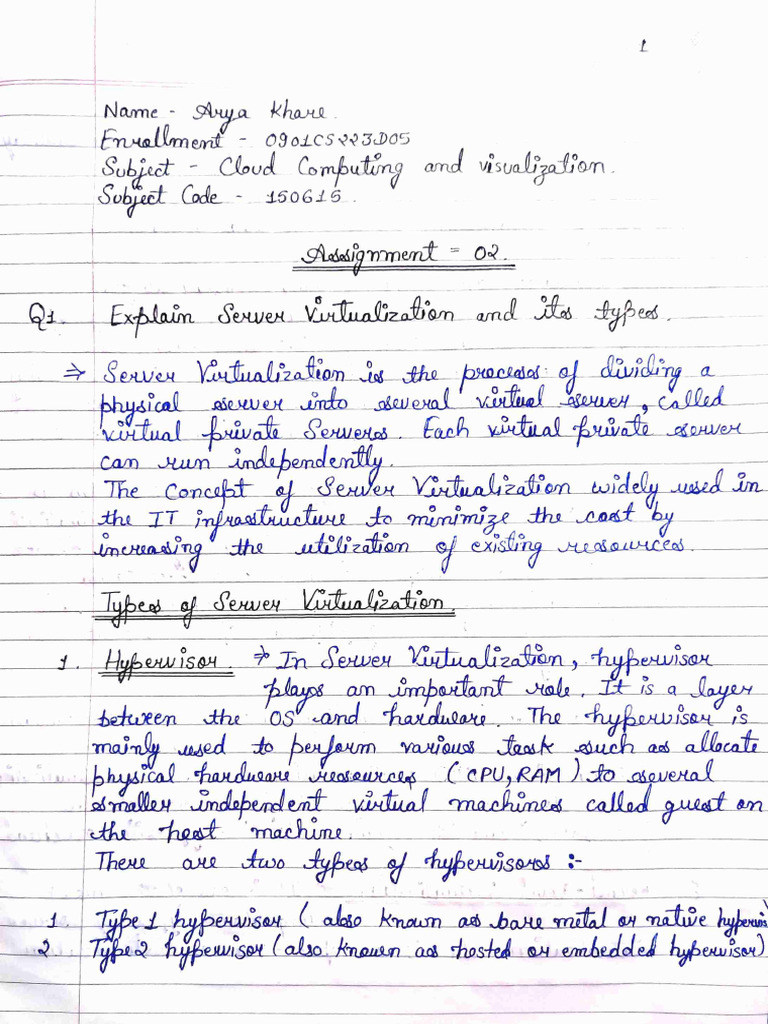 1
Name - Arya Khare.
Enrollment - 0901CS223D05
Subject - Cloud Computing and visualization.
Subject Code - 150615.
Assignment = 02.
Q1. Explain Server Virtualization and its types.
⇒ Server Virtualization is the process of dividing a
physical server into several virtual server, called
virtual private Servers. Each virtual private server
can run independently.
The concept of Server Virtualization widely used in
the IT infrastructure to minimize the cost by
increasing the utilization of existing resources.
Types of Server Virtualization.
1. Hypervisor. → In Server Virtualization, hypervisor
plays an important role. It is a layer
between the OS and hardware. The hypervisor is
mainly used to perform various task such as allocate
physical hardware resources (CPU, RAM) to several
smaller independent virtual machines called guest on
the host machine.
There are two types of hypervisors :-
1. Type 1 hypervisor (also known as bare metal or native hypervis)
2 Type 2 hypervisor (also known as hosted or embedded hypervisor)